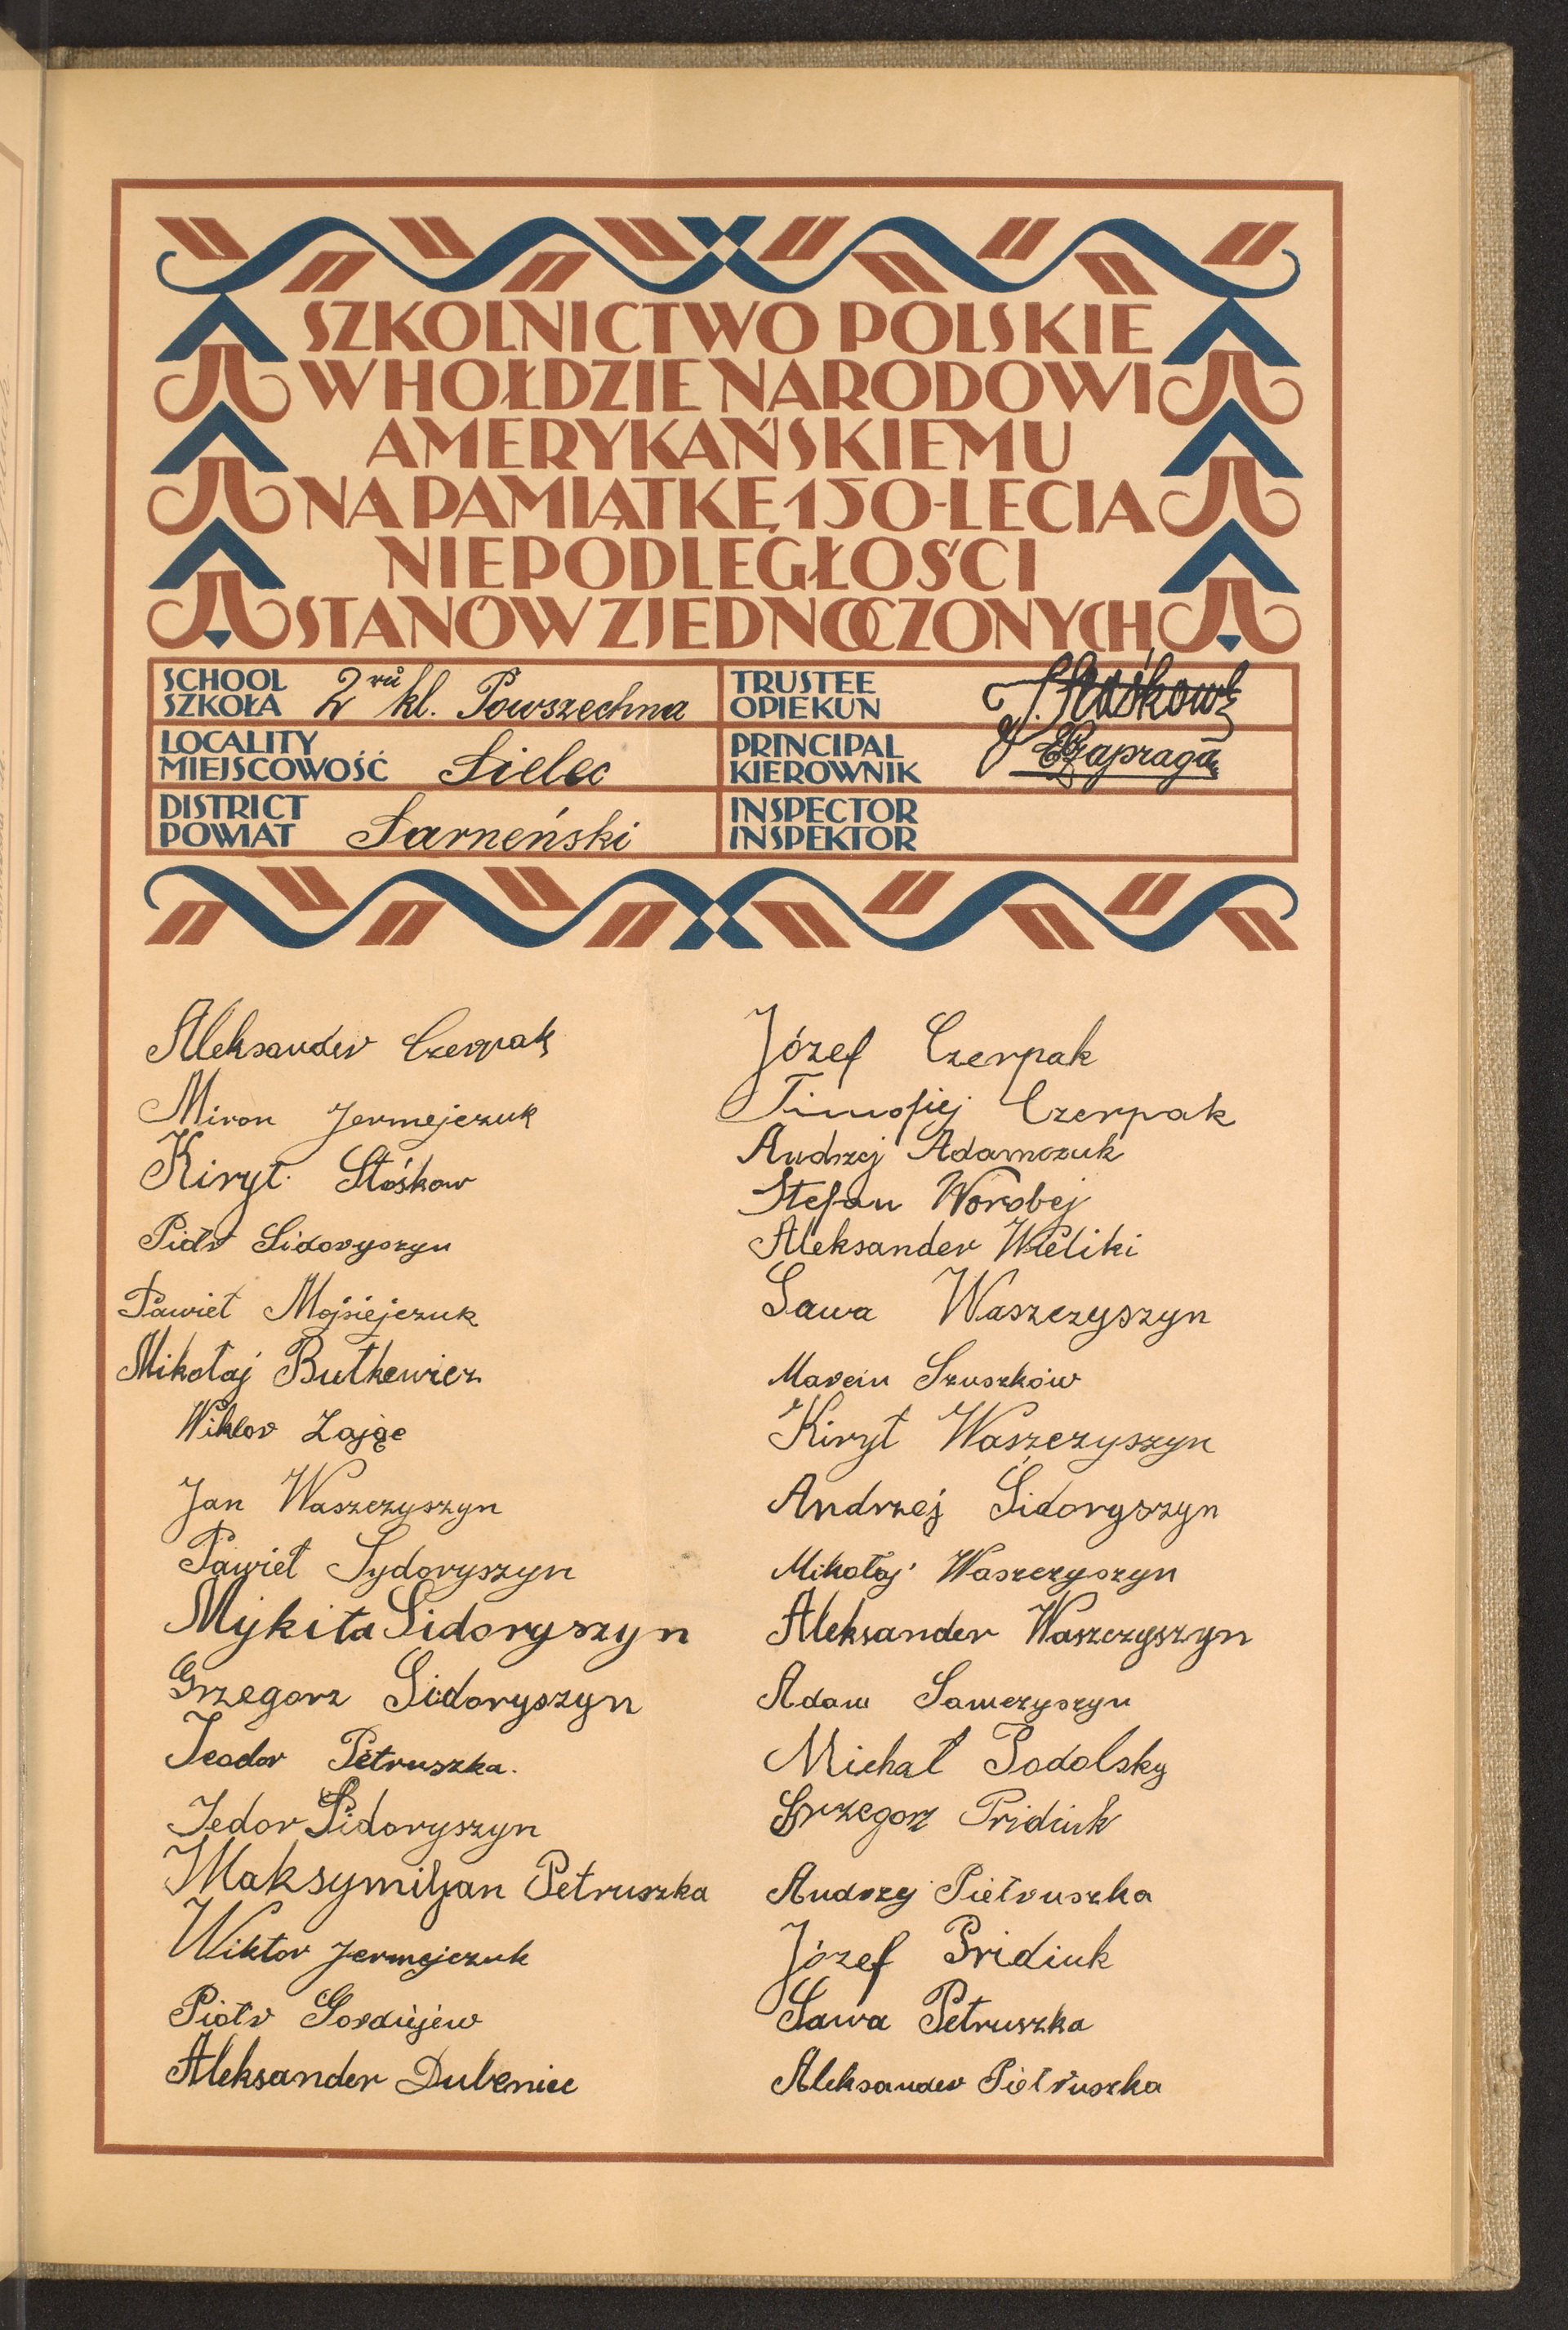 SZKOLNICTWO POLSKIE
W HOŁDZIE NARODOWI
AMERYKAŃSKIEMU
NA PAMIĄTKĘ 150-LECIA
NIEPODLEGŁOŚCI
STANÓW ZJEDNOCZONYCH
SCHOOL
SZKOŁA 2 kl. Powszechna
TRUSTEE
OPIEKUN
LOCALITY
MIEJSCOWOŚĆ Sielec
PRINCIPAL
KIEROWNIK
DISTRICT
POWIAT Sarneński
INSPECTOR
INSPEKTOR
Aleksander Czerpak
Miron Jermejczuk
Kirył Stośkow
Piotr Sidoryszyn
Pawieł Mojsiejczuk
Mikołaj Butkewicz
Wiktor Zając
Jan Waszczyszyn
Pawieł Sydoryszyn
Mykita Sidoryszyn
Grzegorz Sidoryszyn
Teodor Petruszka.
Fedor Sidoryszyn
Maksymiljan Petruszka
Wiktor Jermejczuk
Piotr Gordiejew
Aleksander Dubeniec
Józef Czerpak
Timofiej Czerpak
Andrzej Adamczuk
Stefan Worobej
Aleksander Wieliki
Sawa Waszczyszyn
Marcin Szuszków
Kirył Waszczyszyn
Andrzej Sidoryszyn
Mikołaj Waszczyszyn
Aleksander Waszczyszyn
Adam Sawczyszyn
Michał Podolsky
Grzegorz Pridiuk
Andrzej Pietruszka
Józef Pridiuk
Sawa Petruszka
Aleksander Pietruszka